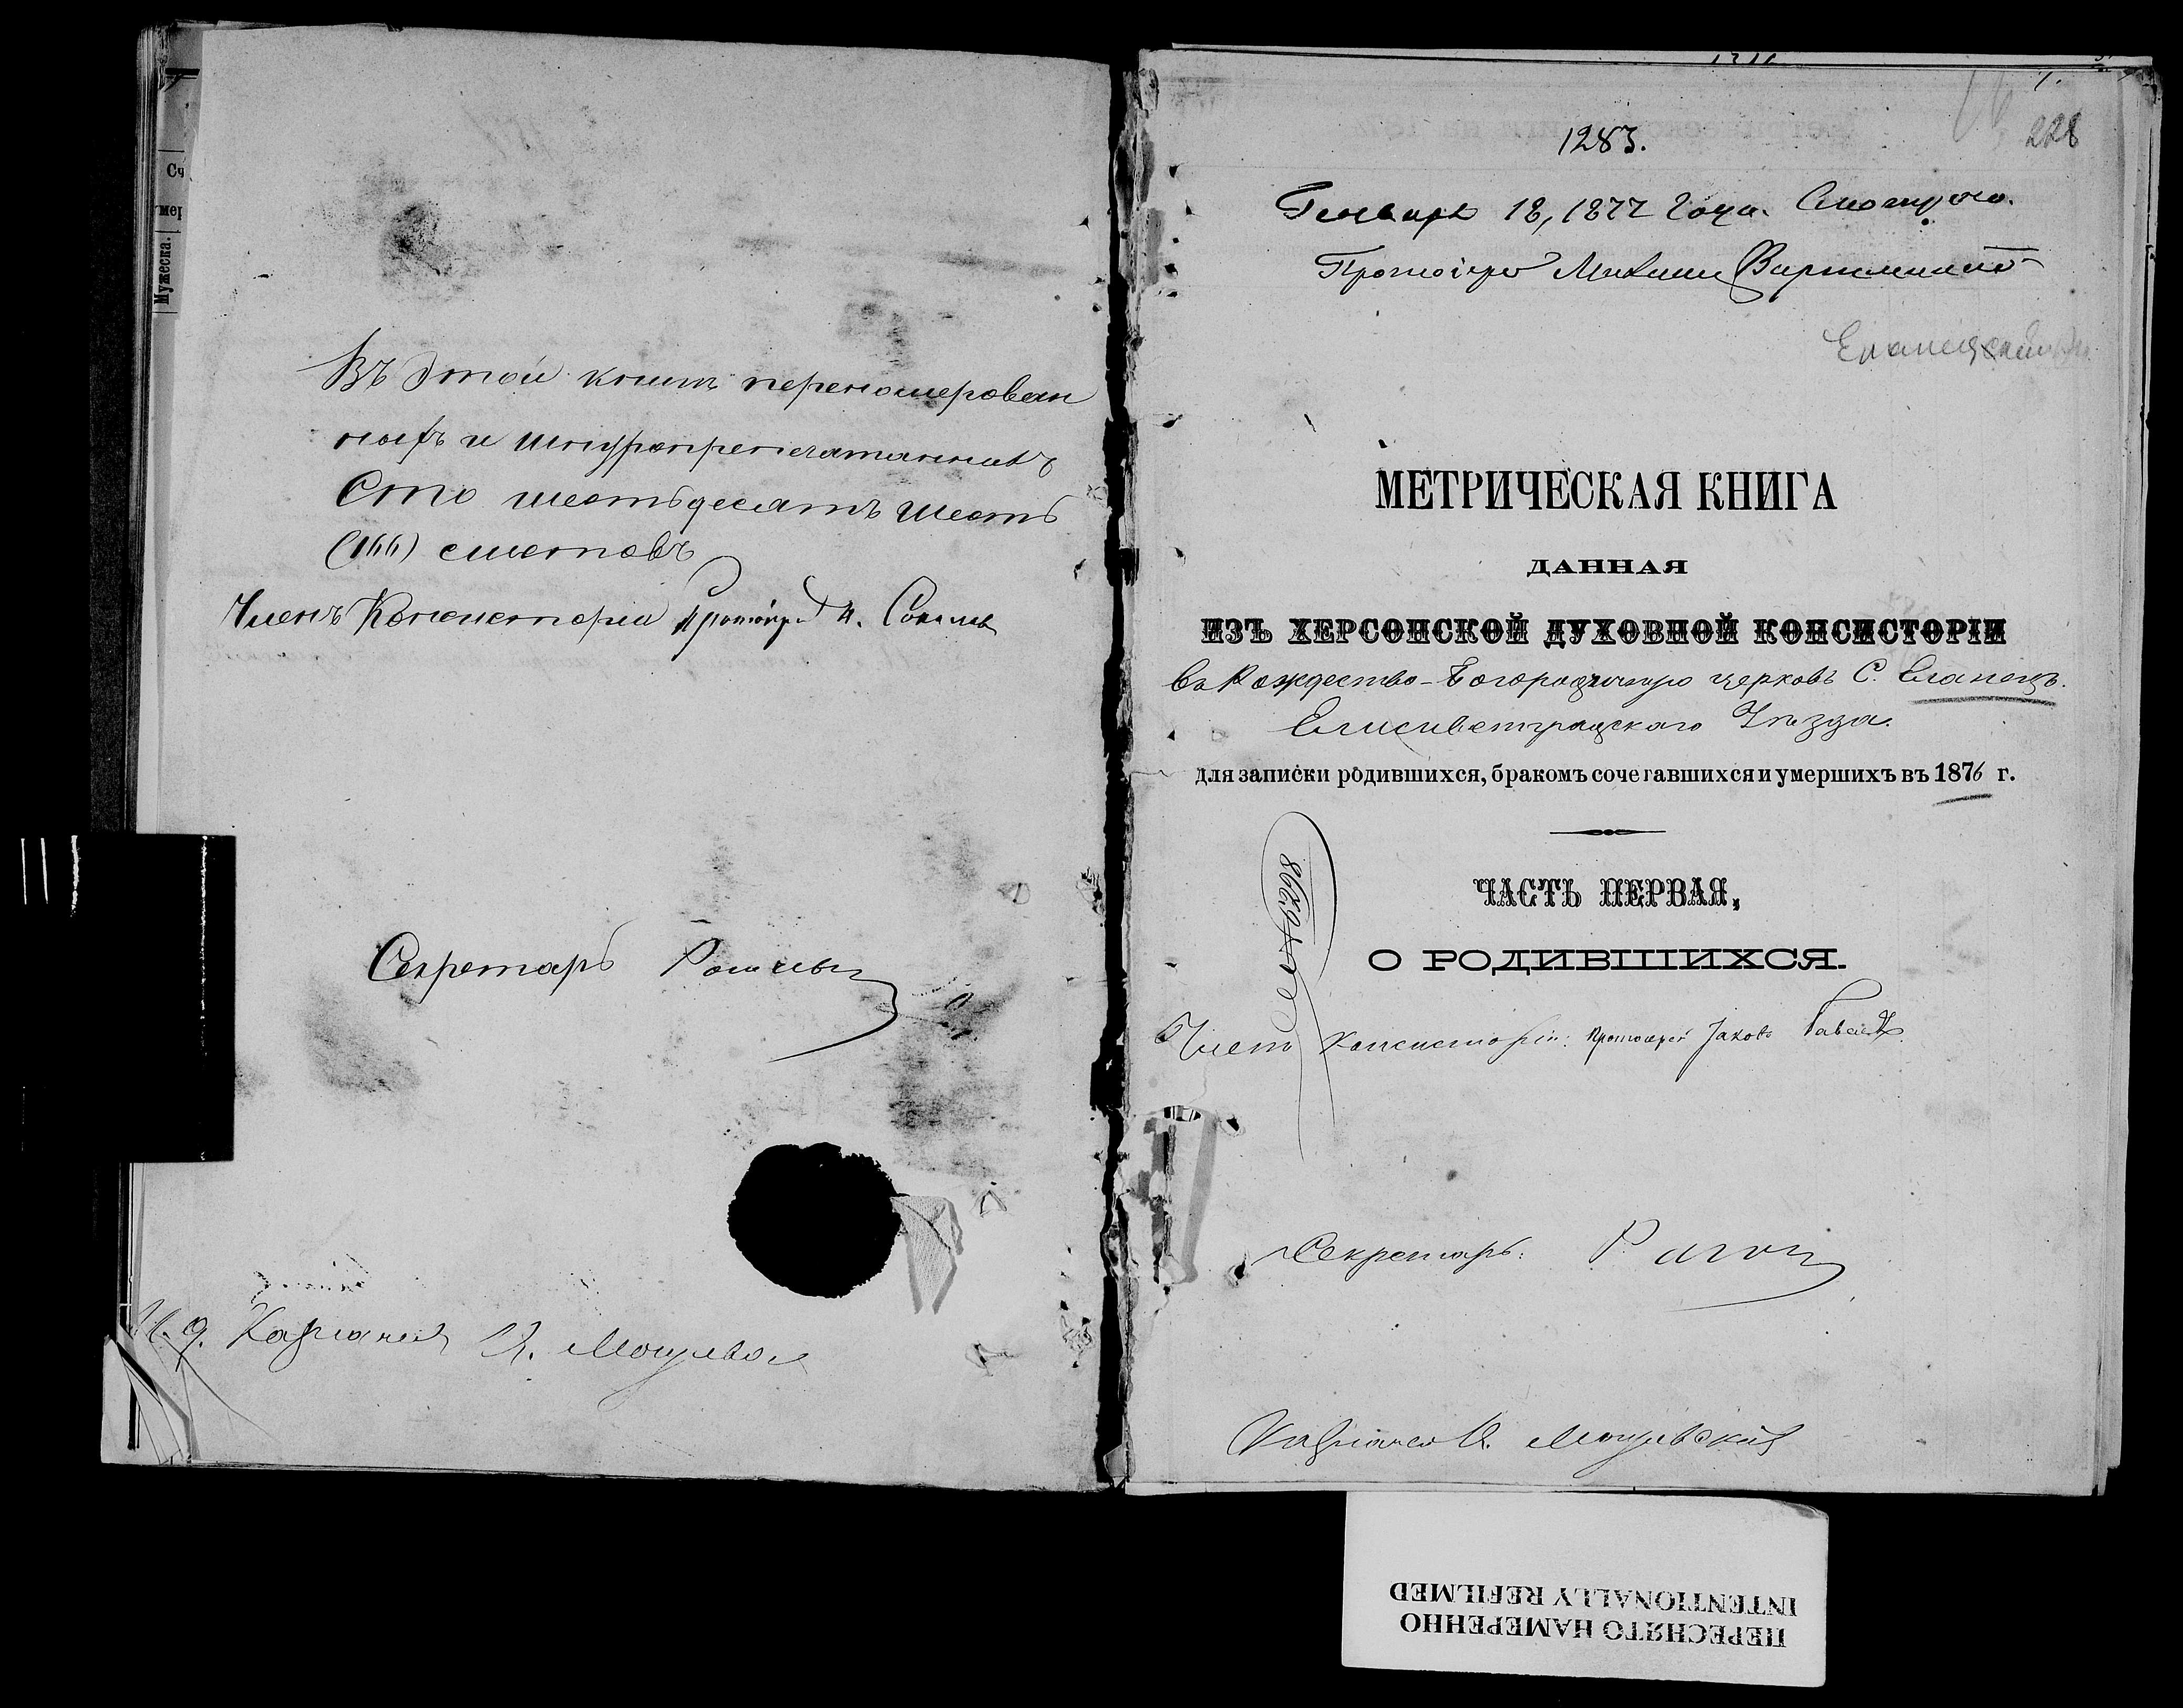 Сч
Мужеска.
Въ этой книгѣ перенумерован
ныхъ и шнуропрепечатанныхъ
Сто шестьдесятъ шесть
(166) листовъ
Членъ Консисторіи Протоіерей
Секретарь
И. д.
1283.
228
Генварь 18, 1877 года. Смотрѣлъ.
Протоіерей
МЕТРИЧЕСКАЯ КНИГА
ДАННАЯ
ИЗЪ ХЕРСОНСКОЙ ДУХОВНОЙ КОНСИСТОРІИ
въ Рождество-Богородичную церковь С. Еланецъ.
Елисаветградскаго Уѣзда.
для записки родившихся, бракомъ сочетавшихся и умершихъ въ 1876 г.
ЧАСТЬ ПЕРВАЯ,
О РОДИВШИХСЯ.
Членъ Консисторіи: Протоіерей Іаковъ
Секретарь:
ПЕРЕСНЯТО НАМЕРЕННО
INTENTIONALLY REFILMED